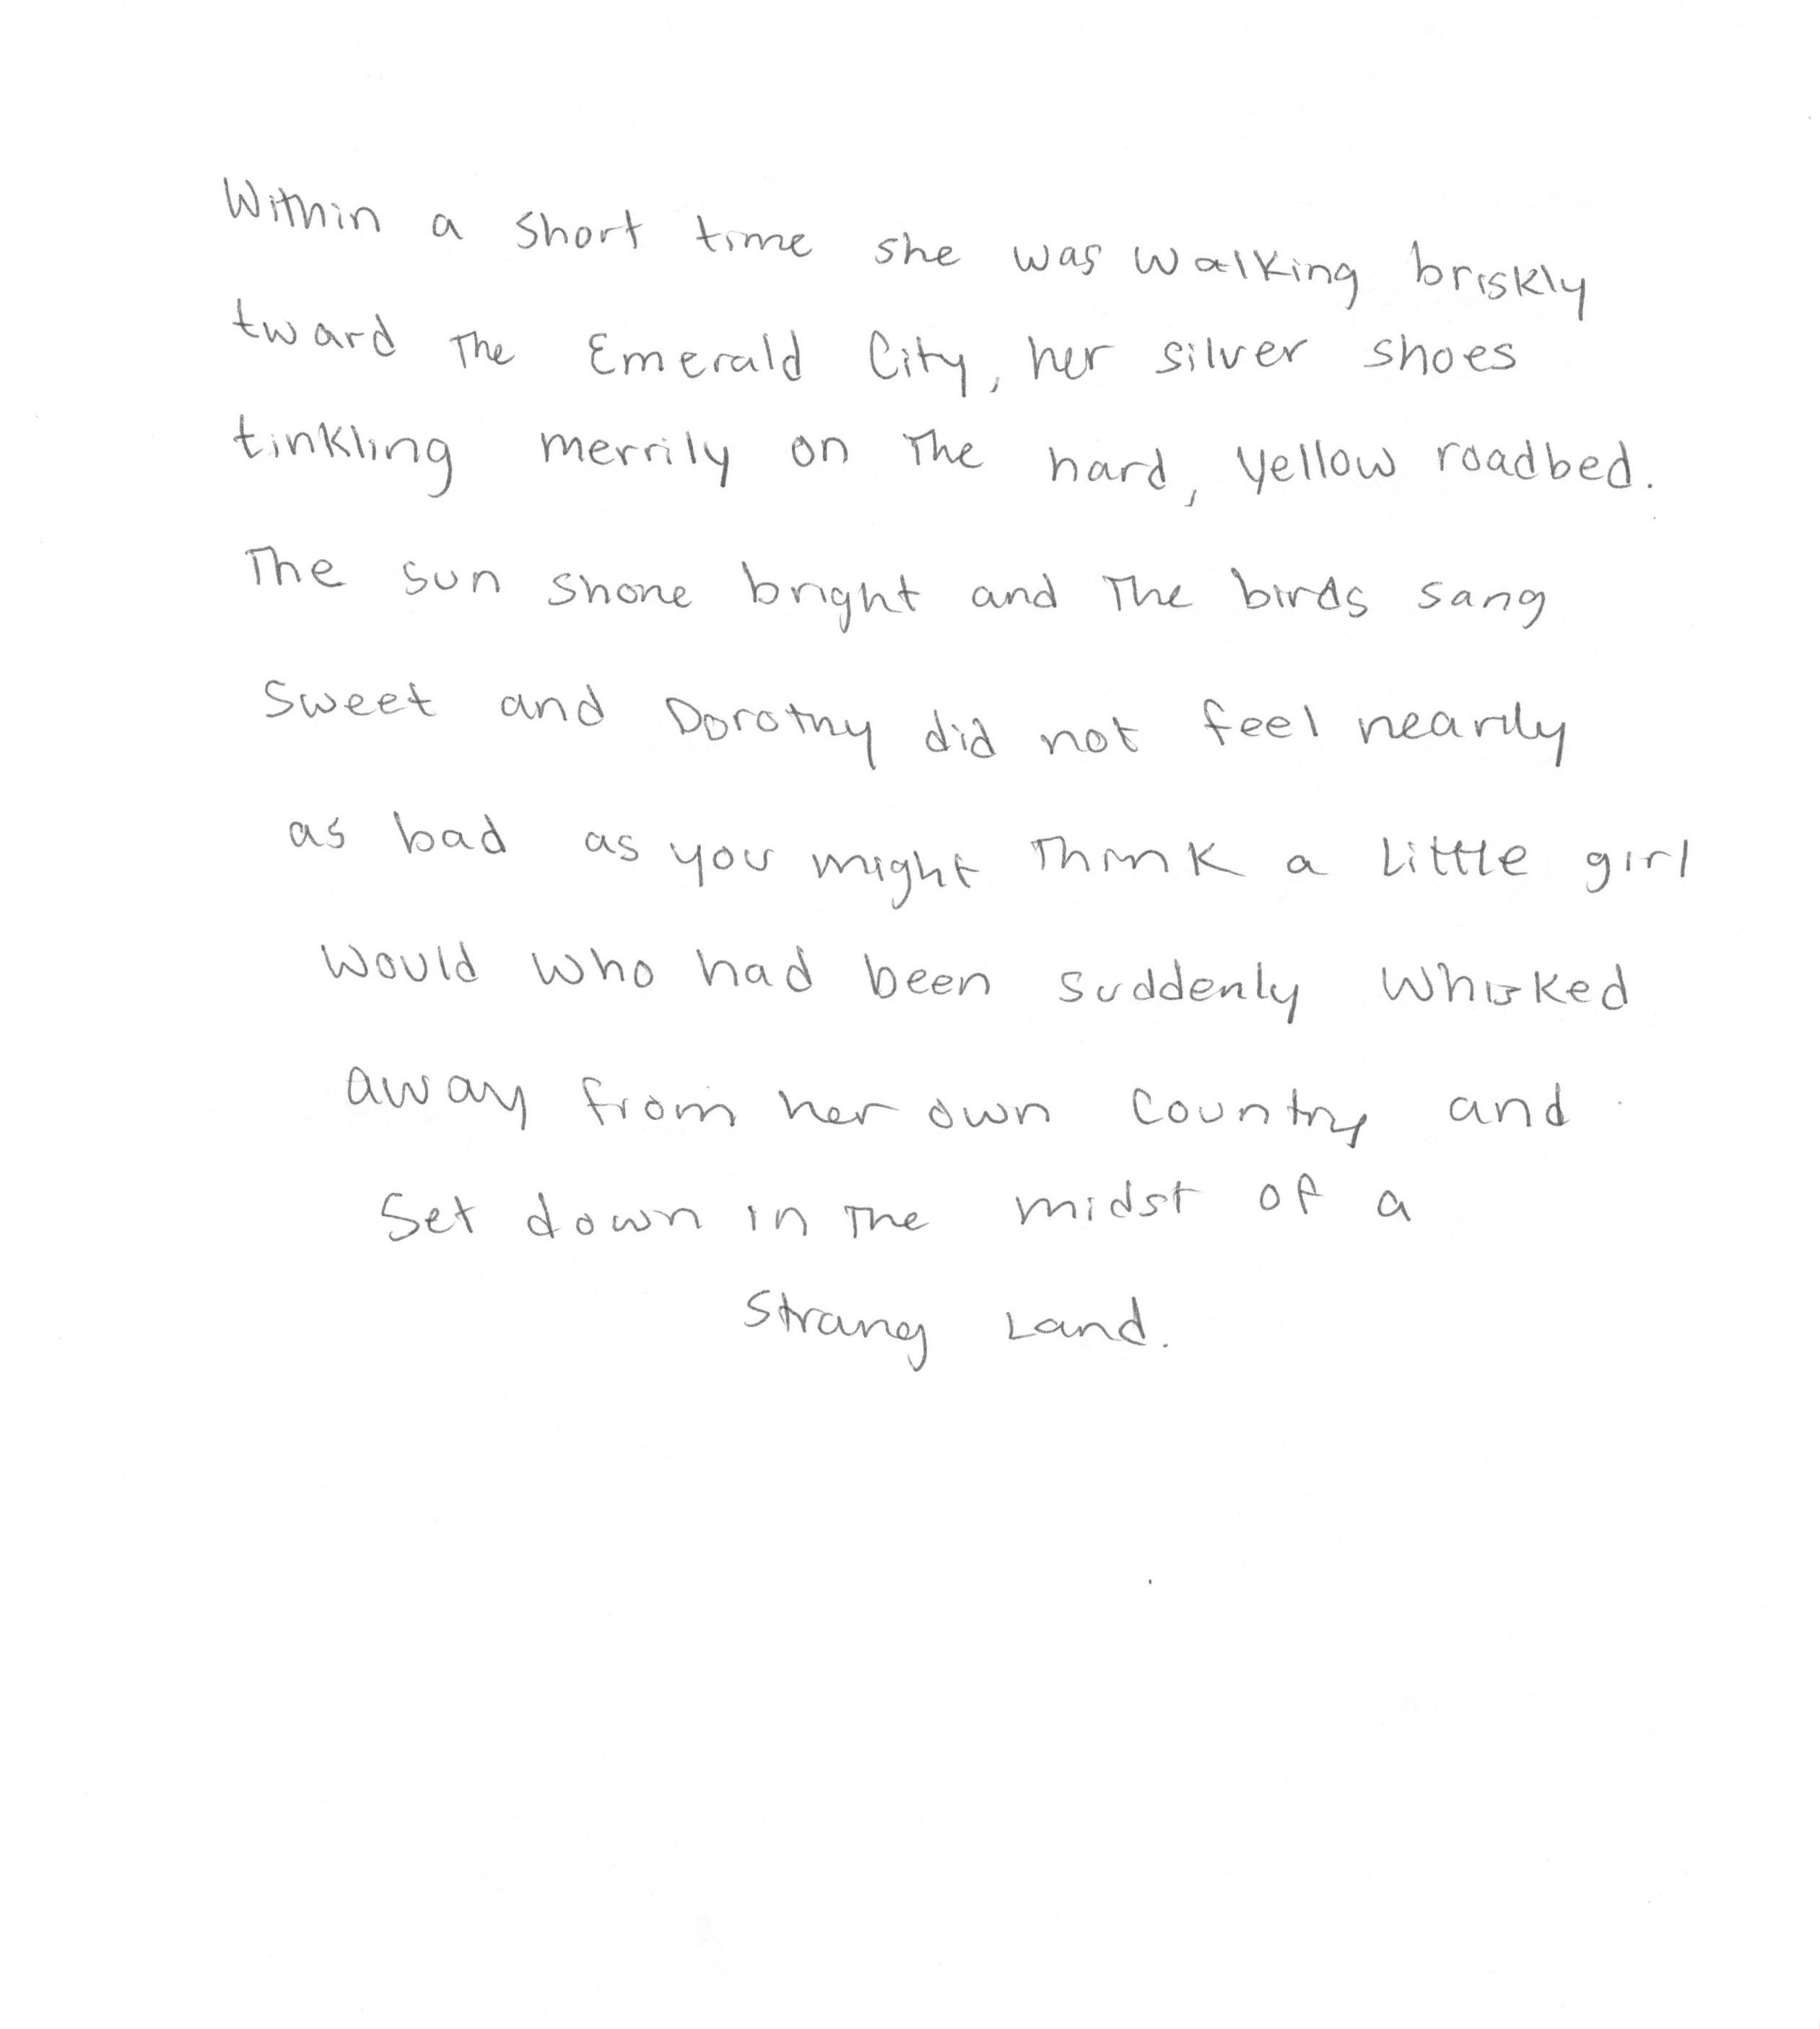 Within a short time she was walking briskly
tward The Emerald City, her silver shoes
tinkling merrily on The hard, yellow roadbed.
The sun shone bright and The birds sang
sweet and Dorothy did not feel nearly
as bad as you might Think a Little girl
would who had been suddenly whisked
away from her own country and
set down in The midst of a
Strang Land.